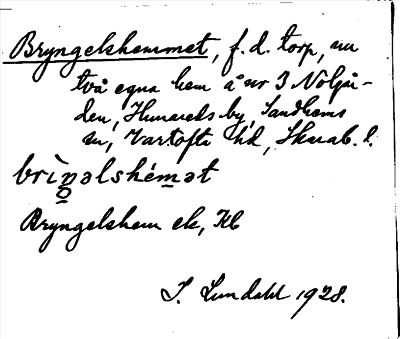 Bryngelshemmet, f.d. torp, nu
två egna hem å nr 3 Nolgår-
den, Humareds by, Sandhems
sn, Vartofta hd, Skarab. l.
brìn̥əlshémət
Bryngelshem ek, Kb
I. Lundahl 1928.